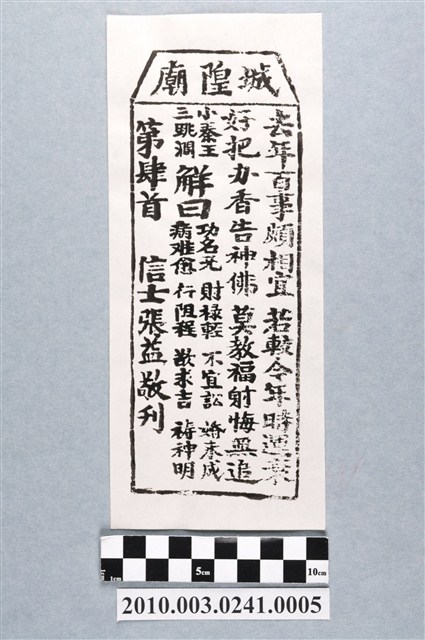 城隍廟
去年百事頗相宜 若較今年時運衰
好把办香告神佛 莫教福射悔無追
小秦王
三跳澗
解曰
功名无 財禄輕 不宜訟 婚未成
病难愈 行阻程 敬求吉 祷神明
第肆首 信士張益敬刋
1cm 5cm 10cm
2010.003.0241.0005